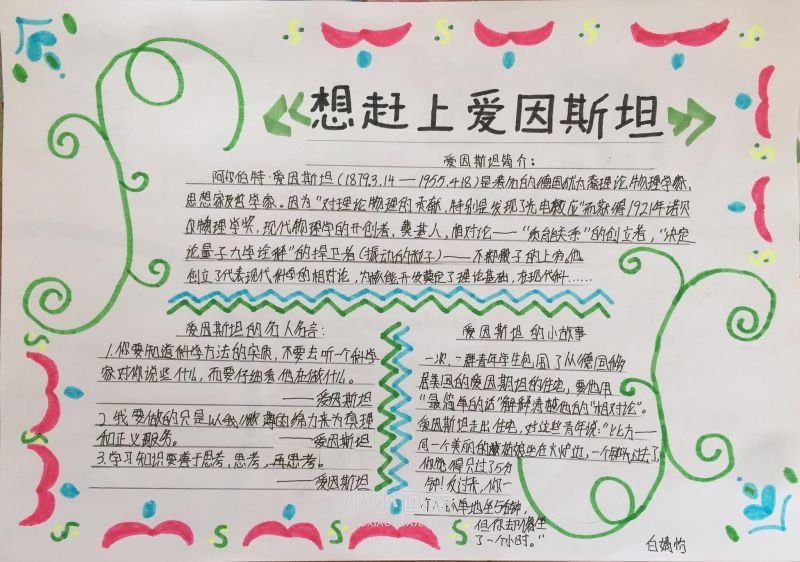 想赶上爱因斯坦
爱因斯坦简介:
阿尔伯特·爱因斯坦(1879.3.14—1955.4.18)是著名的德国犹太裔理论物理学家,
思想家及哲学家。因为“对理论物理的贡献,特别是发现了光电效应”而获得1921年诺贝
尔物理学奖,现代物理学的开创者、奠基人,相对论——“质能关系”的创立者,“决定
论量子力学诠释”的捍卫者(振动的粒子)——不掷骰子的上帝,他
创立了代表现代科学的相对论,为核能开发奠定了理论基础,在现代科……
爱因斯坦的名人名言:
1.你要知道科学方法的实质,不要去听一个科学
家对你说些什么,而要仔细看他在做什么。
——爱因斯坦
2.我要做的只是以我微薄的绵力来为真理
和正义服务。 ——爱因斯坦
3.学习知识要善于思考,思考,再思考。
——爱因斯坦
爱因斯坦的小故事
一次,一群青年学生包围了从德国移
居美国的爱因斯坦的住宅,要他用
“最简单的话”解释清楚他的“相对论”。
爱因斯坦走出住宅,对这些青年说:“比方——
同一个美丽的姑娘坐在火炉边,一个钟头过去了,
你觉得只过了5分
钟!反过来,你一
个人孤单地坐5分钟,
但你却像坐
了一个小时。”